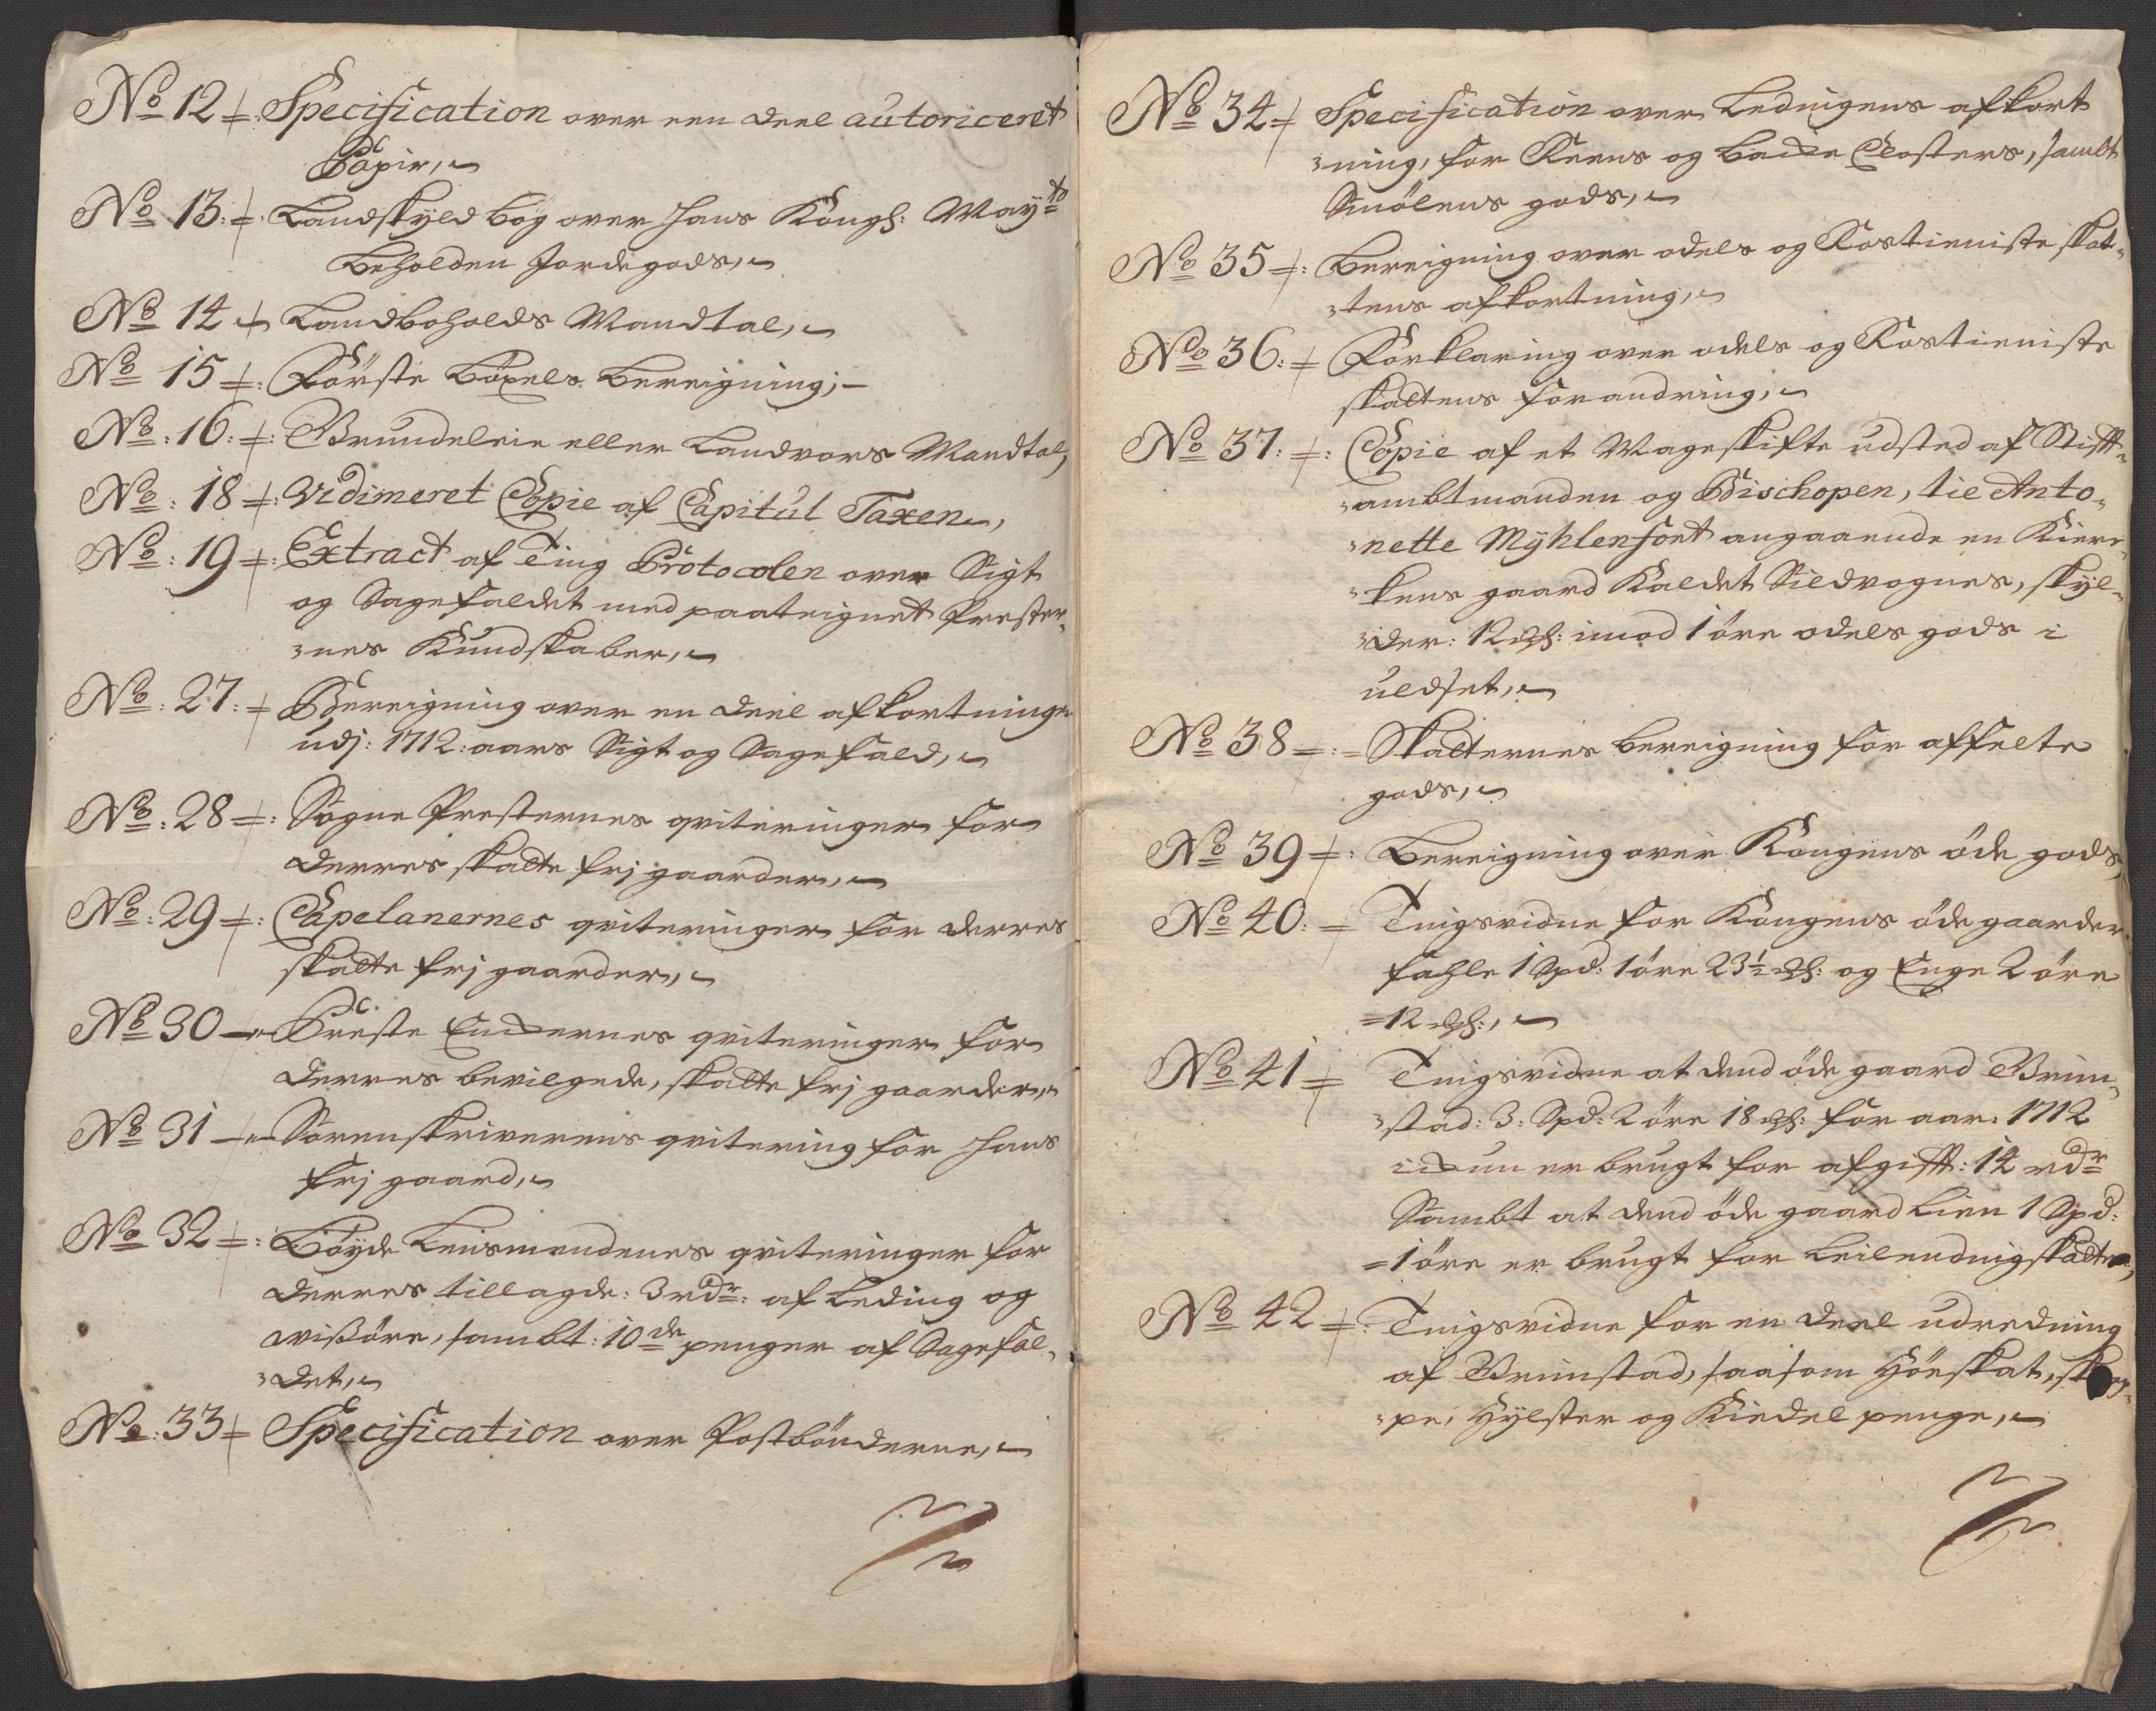 No 12 Specification over een deel autoriceret
Papir,
No 13: Landskyld bog over Hans Kongl: Mayts
beholden Jordegods,
No 14 Landboholds Mandtal,
No 15 Förste böxels bereigning;
No: 16: Grundeleie eller Landvars Mandtal,
No: 18 Vidimeret Copie af Capitul Taxen,
No: 19 Extract af Ting Protocolen over Sigt
og Sagefaldet med paateignet Prester-
nes Kundskaber,
No: 27: Bereigning over en deel afkortninger
udj: 1712: aars Sigt og Sagefald,
No: 28: Sogne Presternes qviteringer for
derres skatte frj gaarder,
No: 29: Capelanernes qviteringer for derres
skatte frj gaarder,
No 30 Preste Enckernes qviteringer for
derres bevilgede, skatte frj gaarder,
No 31 Sorenskriverens qvitering for Hans
frj gaard,
No 32: Böyde Lensmendenes qviteringer for
derres tillagde: 3 rdr: af Leding og
wissöre, sambt: 10de penger af Sagefal-
det,
No: 33 Specification over Postbönderne,
No 34 Specification over Ledingens afkort
ning, for Reens og bache Closters, sambt
Smölens gods,
No 35: Bereigning over odels og Rostieniste skat-
tens afkortning,
No 36: Forklaring over odels og Rostieniste
skattens forandring,
No 37: Copie af et Mageskifte udsted af Stifft-
ambtmanden og Bischopen, til Anto-
nette Mÿhlenfort angaaende en Kier-
kens gaard Kaldet Sildvognes, skyl-
der: 12 mkl: imod 1 öre odels gods i
uldset,
No 38 Skatternes bereigning for affelte
gods,
No 39: Bereigning over Kongens öde gods,
No 40: Tingsvidne for Kongens öde gaarder
fahle 1 Spd: 1 öre 23½ mkl: og Enge 2 öre
12 mkl:,
No 41 Tingsvidne at dend öde gaard Grim-
stad: 3: Spd: 2 öre 18 mkl: for aar 1712
er brugt for afgifft: 14 rdr
Sambt at dend öde gaard Lien 1 Spd:
1 öre er brugt for Leilendingskatten,
No 42: Tingsvidne for en deel udredning
af Grimstad, saasom Höeskat,
pe, Hylster og Kiedel penge,